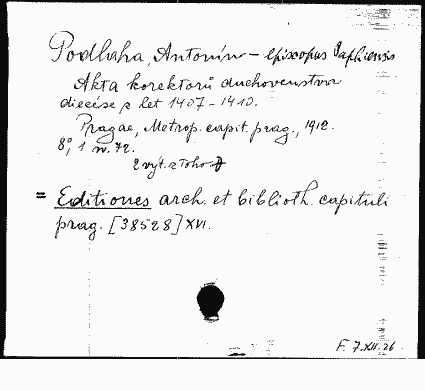 Podlaha, Antonín – episcopus Paphiensis
Akta korektorů duchovenstva
diecése z let 1407 - 1410.
Pragae, Metrop. capit. prag., 1912.
8°, 1 n. 72.
2 výt. z toho
= Editiones arch. et biblioth. capituli
prag. [38528] XVI.
F. 7.XII.26